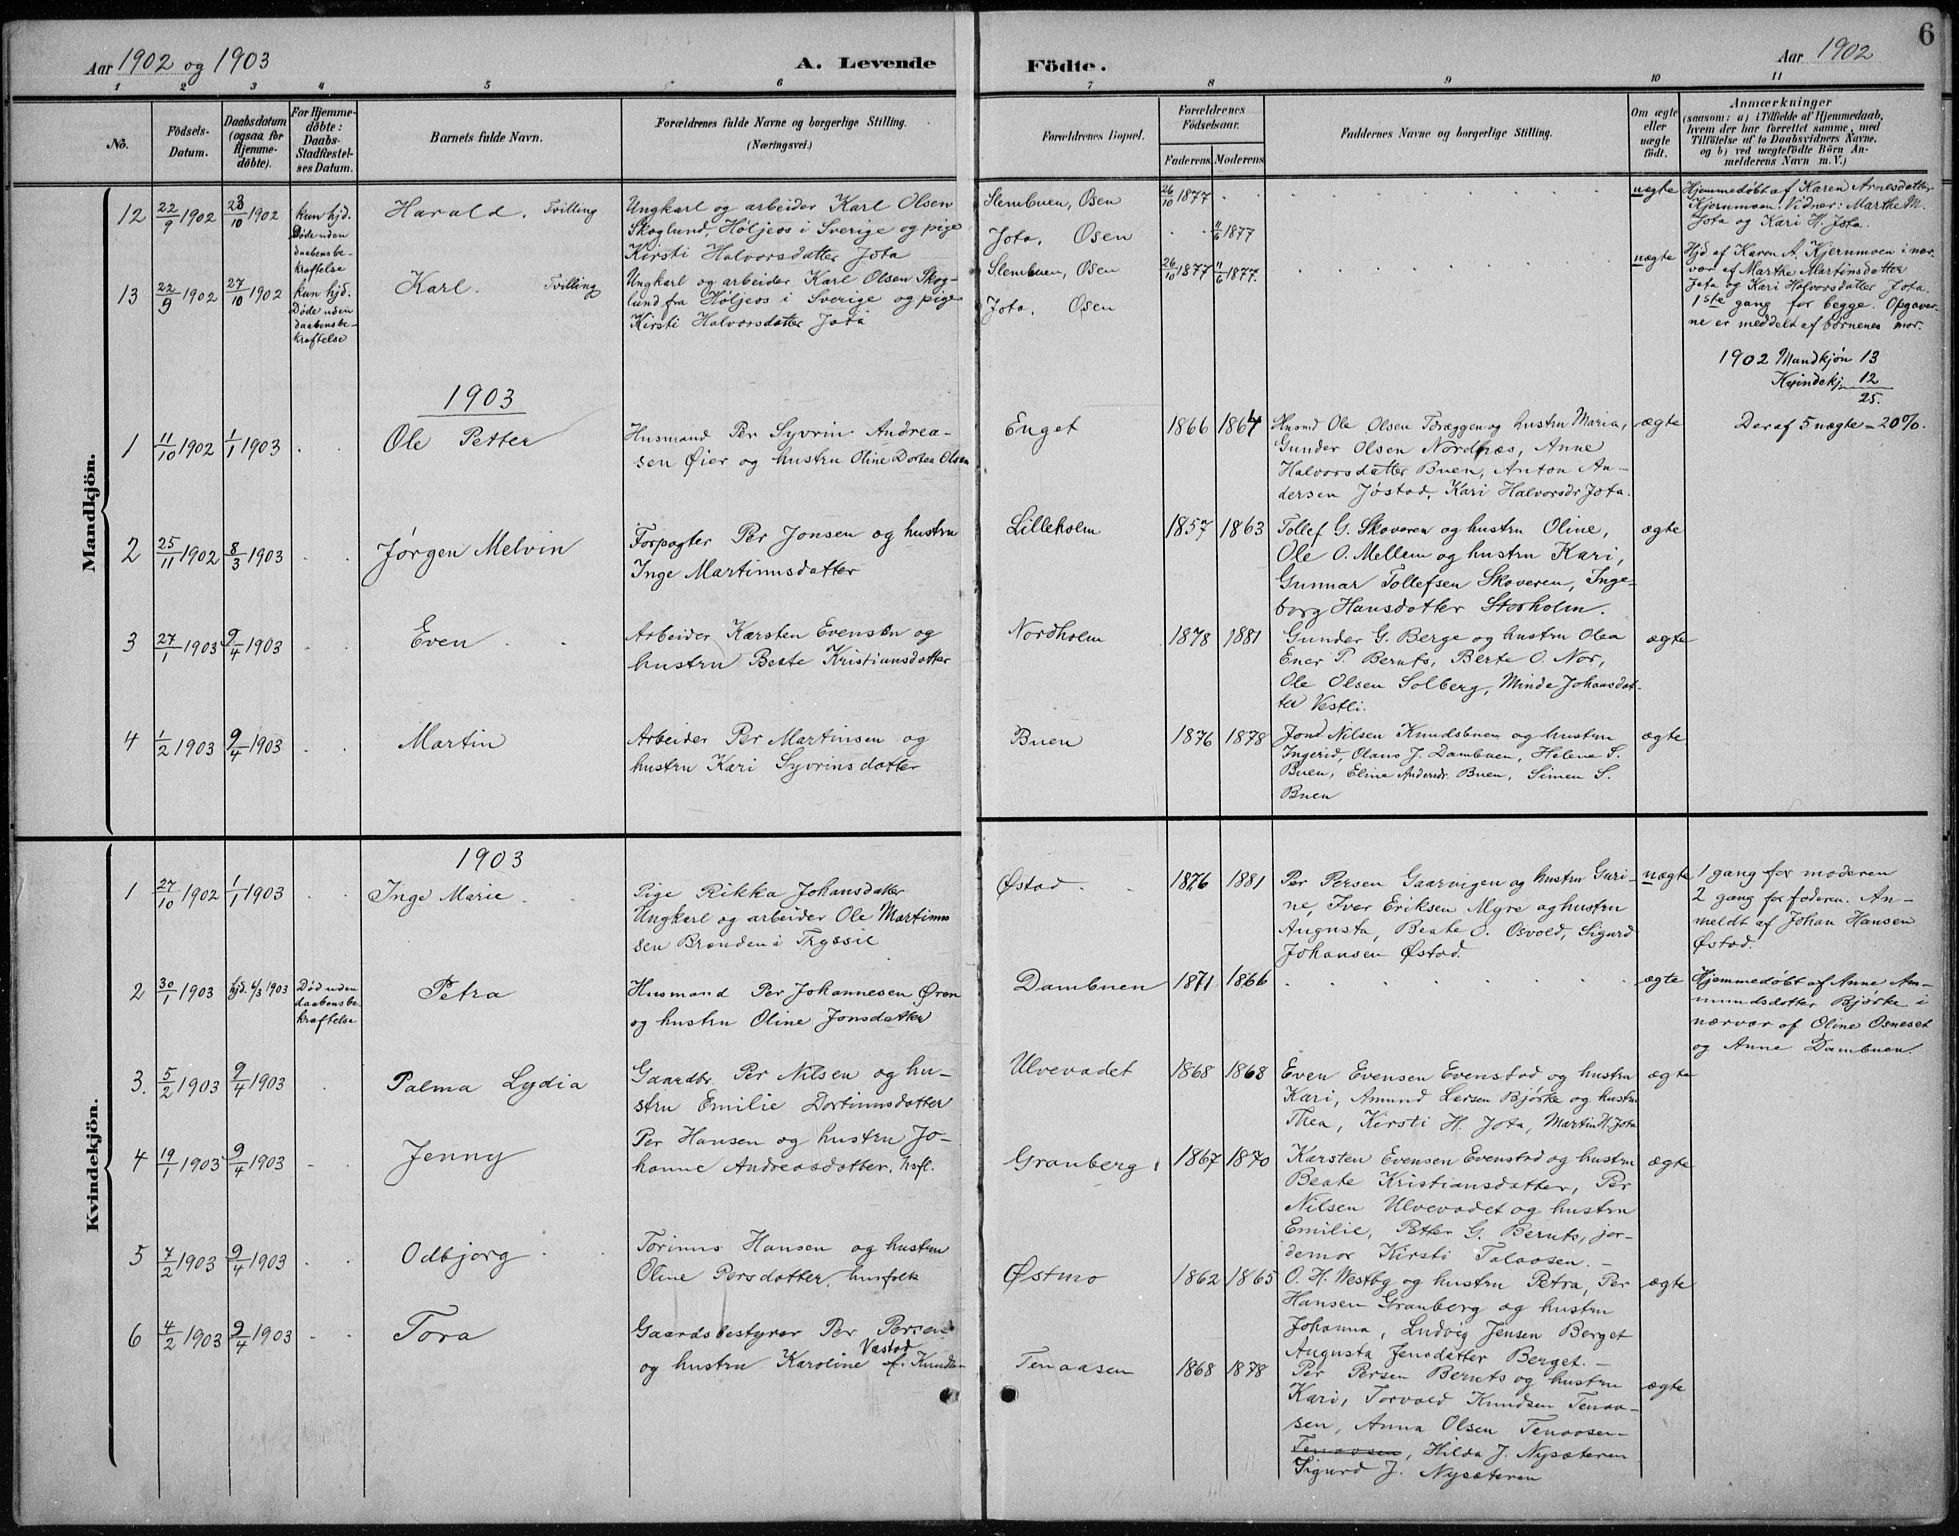 6
Aar 1902 og 1903
A. Levende Födte.
Aar 1902
1 2 3 4 5 6 7 8 9 10 11
No.
Födsels-
Datum.
Daabsdatum
(ogsaa for
Hjemme-
döbte).
For Hjemme-
döbte:
Daabs-
Stadfæstel-
ses Datum.
Barnets fulde Navn.
Forældrenes fulde Navne og borgerlige Stilling.
(Næringsvei.)
Forældrenes Bopæl.
Forældrenes
Födselsaar.
Faderens Moderens
Faddernes Navne og borgerlige Stilling.
Om ægte
eller
uægte
födt.
Anmærkninger
(saasom: a) i Tilfælde af Hjemmedaab,
hvem der har forrettet samme, med
Tilföielse af to Daabsvidners Navne.
og b) ved uægtefödte Börn An-
melderens Navn m. V.)
Mandkjön.
12 22/9 1902 23/10 1902
kun hjd.
Døde uden
daabensbe-
kræftelse
Harald. Tvilling
Ungkarl og arbeider Karl Olsen
Skoglund, Höljeos i Sverige og pige
Kirsti Halvorsdatter Jota
Slembuen, Osen
Jota, Osen
26/10 1877
11/6 1877
uægte
Hjemmedøbt af Karen Arnesdatter
Kjernmoen. Vidner: Marthe M.
Jota og Kari H. Jota.
13 22/9 1902 27/10 1902
kun hjd.
Døde uden
daabensbe-
kræftelse
Karl. Tvilling
Ungkarl og arbeider Karl Olsen Skog-
lund fra Höljeos i Sverige og pige
Kirsti Halvorsdatter Jota
Slembuen, Osen
Jota, Osen
26/10 1877 11/6 1877.
uægte
Hjd. af Karen A. Kjernmoen i nær-
vær af Marthe Martinsdatter
Jota og Kari Halvorsdatter Jota.
1ste gang for begge. Opgaver-
ne er meddelt af børnenes mor.
1902 Mandkjön 13
Kvindekj. 12
25.
Deraf 5 uægte = 20%.
1903
1 11/10 1902 1/1 1903
Ole Petter
Husmand Per Syvrin Andrea-
sen Øier og hustru Oline Dortea Olsen
Enget
1866 1864
Husmd Ole Olsen Toræggen og hustru Maria,
Gunder Olsen Nordnæs, Anne
Halvorsdatter Buen, Anton An-
dersen Jøstad, Kari Halvorsdr Jota.
ægte
2 25/11 1902 8/3 1903
Jørgen Melvin
Forpagter Per Jonsen og hustru
Inge Martinusdatter
Lilleholm
1857 1863
Tollef G. Skoveren og hustru Oline,
Ole O. Mellem og hustru Kari,
Gunnar Tollefsen Skoveren, Inge-
borg Hansdatter Storholm.
ægte
3 27/1 1903 9/4 1903
Even
Arbeider Karsten Evensen og
hustru Beate Kristiansdatter
Nordholm
1878 1881
Gunder G. Berge og hustru Olea
Ener P. Bernts, Berte O. Nor,
Ole Olsen Solberg, Minda Johansdat-
ter Vestli.
ægte
4 1/2 1903 9/4 1903
Martin
Arbeider Per Martinsen og
hustru Kari Syvrinsdatter
Buen
1876 1878
Jon Nilsen Knudsbuen og hustru
Ingerid, Olaus J. Dambuen, Helena S.
Buen, Elina Andersdr. Buen, Simen S.
Buen
ægte
Kvindekjön.
1903
1 27/10 1902 1/1 1903
Inge Marie
Pige Rikka Johansdatter
Ungkarl og arbeider Ole Martinus
sen Brænden i Tryssil
Østad.
1876 1881
Per Persen Gaarvigen og hustru Guri-
ne, Iver Eriksen Myre og hustru
Augusta, Beate O. Osvold, Sigurd
Johansen Østad.
uægte
1 gang for moderen
2 gang for faderen. An-
meldt af Johan Hansen
Østad.
2 30/1 1903 hjd. 6/3 1903
Død uden
daabensbe-
kræftelse
Petra
Husmand Per Johannesen Øren
og hustru Oline Jonsdatter
Dambuen
1871 1866
ægte
Hjemmedøbt af Anne Am-
mundsdatter Bjørke i
nærvær af Oline Osneset
og Anne Dambuen.
3. 5/2 1903 9/4 1903
Palma Lydia
Gaardbr. Per Nilsen og hu-
stru Emilie Dortinusdatter
Ulvevadet
1868 1868
Even Evensen Evenstad og hustru
Kari, Amund Larsen Bjørke og hustru
Thea, Kirsti H. Jota, Martin H. Jota
ægte
4 19/1 1903 9/4 1903
Jenny
Per Hansen og hustru Jo-
hanne Andreasdatter, hsfl.
Granberg
1867 1870
Karsten Evensen Evenstad og hustru
Beate Kristiansdatter, Per
Nilsen Ulvevadet og hustru
Emilie, Petter G. Bernts, jor-
demor Kirsti Talaasen.
ægte
5 7/2 1903 9/4 1903
Odbjorg
Torinus Hansen og hustru
Oline Persdatter, husfolk
Østmo
1862 1865
O. H. Westby og hustru Petra, Per
Hansen Granberg og hustru
Johanna, Ludvig Jensen Berget
Augusta Jensdatter Berget. -
ægte
6 4/2 1903 9/4 1903
Tora
Gaardsbestyrer Per Persen
Vastad
og hustru Karoline f. Knuds-
Tenaasen
1868 1878
Per Persen Bernts og hustru
Kari, Torvald Knudsen Tenaa-
sen, Anna Olsen Tenaasen
Tenaasen, Hilda J. Nysæteren
Sigurd J. Nysæteren
ægte